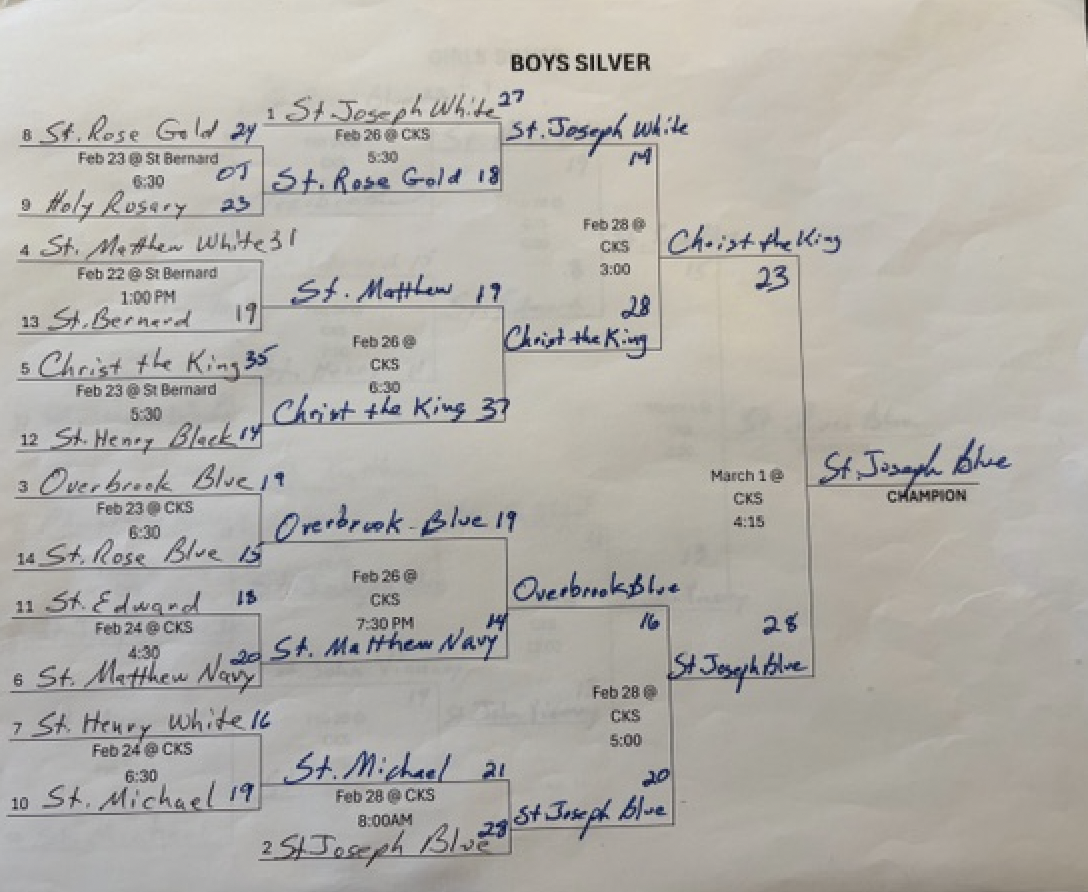 BOYS SILVER
1 St. Joseph White 27
8 St. Rose Gold 24
Feb 23 @ St Bernard
6:30
OT
9 Holy Rosary 23
Feb 26 @ CKS
5:30
St. Rose Gold 18
St. Joseph White
14
4 St. Matthew White 31
Feb 22 @ St Bernard
1:00 PM
13 St. Bernard 19
St. Matthew 19
Feb 26 @
CKS
6:30
Christ the King 37
5 Christ the King 35
Feb 23 @ St Bernard
5:30
12 St. Henry Black 14
Feb 28 @
CKS
3:00
28
Christ the King
Christ the King
23
3 Overbrook Blue 19
Feb 23 @ CKS
6:30
14 St. Rose Blue 15
Overbrook - Blue 19
Feb 26 @
CKS
7:30 PM
14
St. Matthew Navy
11 St. Edward 18
Feb 24 @ CKS
4:30
20
6 St. Matthew Navy
Overbrook Blue
16
7 St. Henry White 16
Feb 24 @ CKS
6:30
10 St. Michael 19
St. Michael 21
Feb 28 @ CKS
8:00AM
2 St Joseph Blue 28
Feb 28 @
CKS
5:00
20
St Joseph Blue
March 1 @
CKS
4:15
28
St Joseph Blue
St. Joseph Blue
CHAMPION